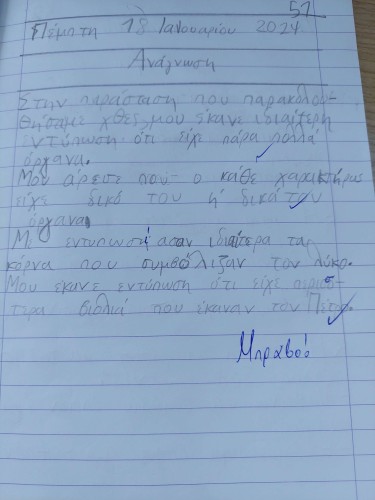 51
Πέμπτη 18 Ιανουαρίου 2024
Ανάγνωση
Στην παράσταση που παρακολου-
θήσαμε χθες μου έκανε ιδιαίτερη
εντύπωση ότι είχε πάρα πολλά
όργανα.
Μου άρεσε που ο κάθε χαρακτήρας
είχε δικό του ή δικά του
όργανα
Με εντυπωσίασαν ιδιαίτερα τα
κόρνα που συμβόλιζαν τον λύκο.
Μου έκανε εντύπωση ότι είχε περισ-
τερα βιολιά που έκαναν τον Πέτρο.
Μπράβο!